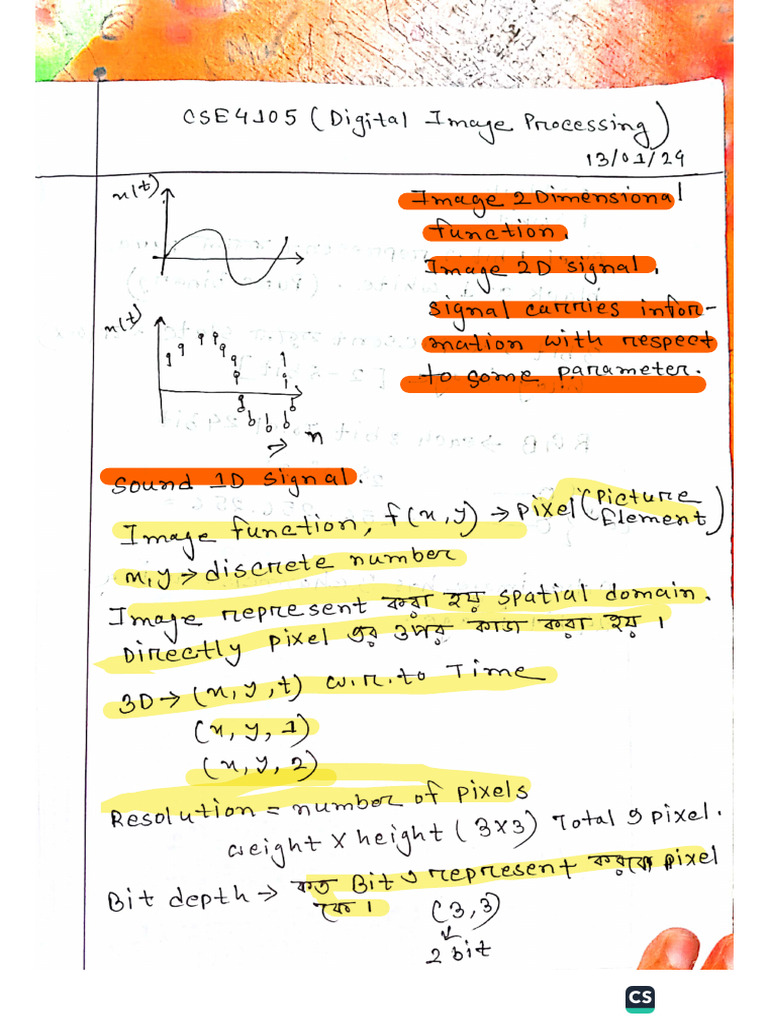 CSE4105 (Digital Image Processing)
13/01/24
x(t)
Image 2 Dimensional
function.
Image 2D signal.
signal carries infor-
mation with respect
to some parameter.
x(t)
n
Sound 1D signal.
Image function, f(x,y) → Pixel (Picture Element)
x,y → discrete number
Image represent করা হয় spatial domain.
Directly Pixel এর ওপর কাজ করা হয়।
3D → (x,y,t) w.r.to Time
(x,y,1)
(x,y,2)
Resolution = number of pixels
weight x height (3x3) Total 9 pixel.
Bit depth → কত Bit এ represent করবে pixel
কে।
(3,3)
2 bit
CS